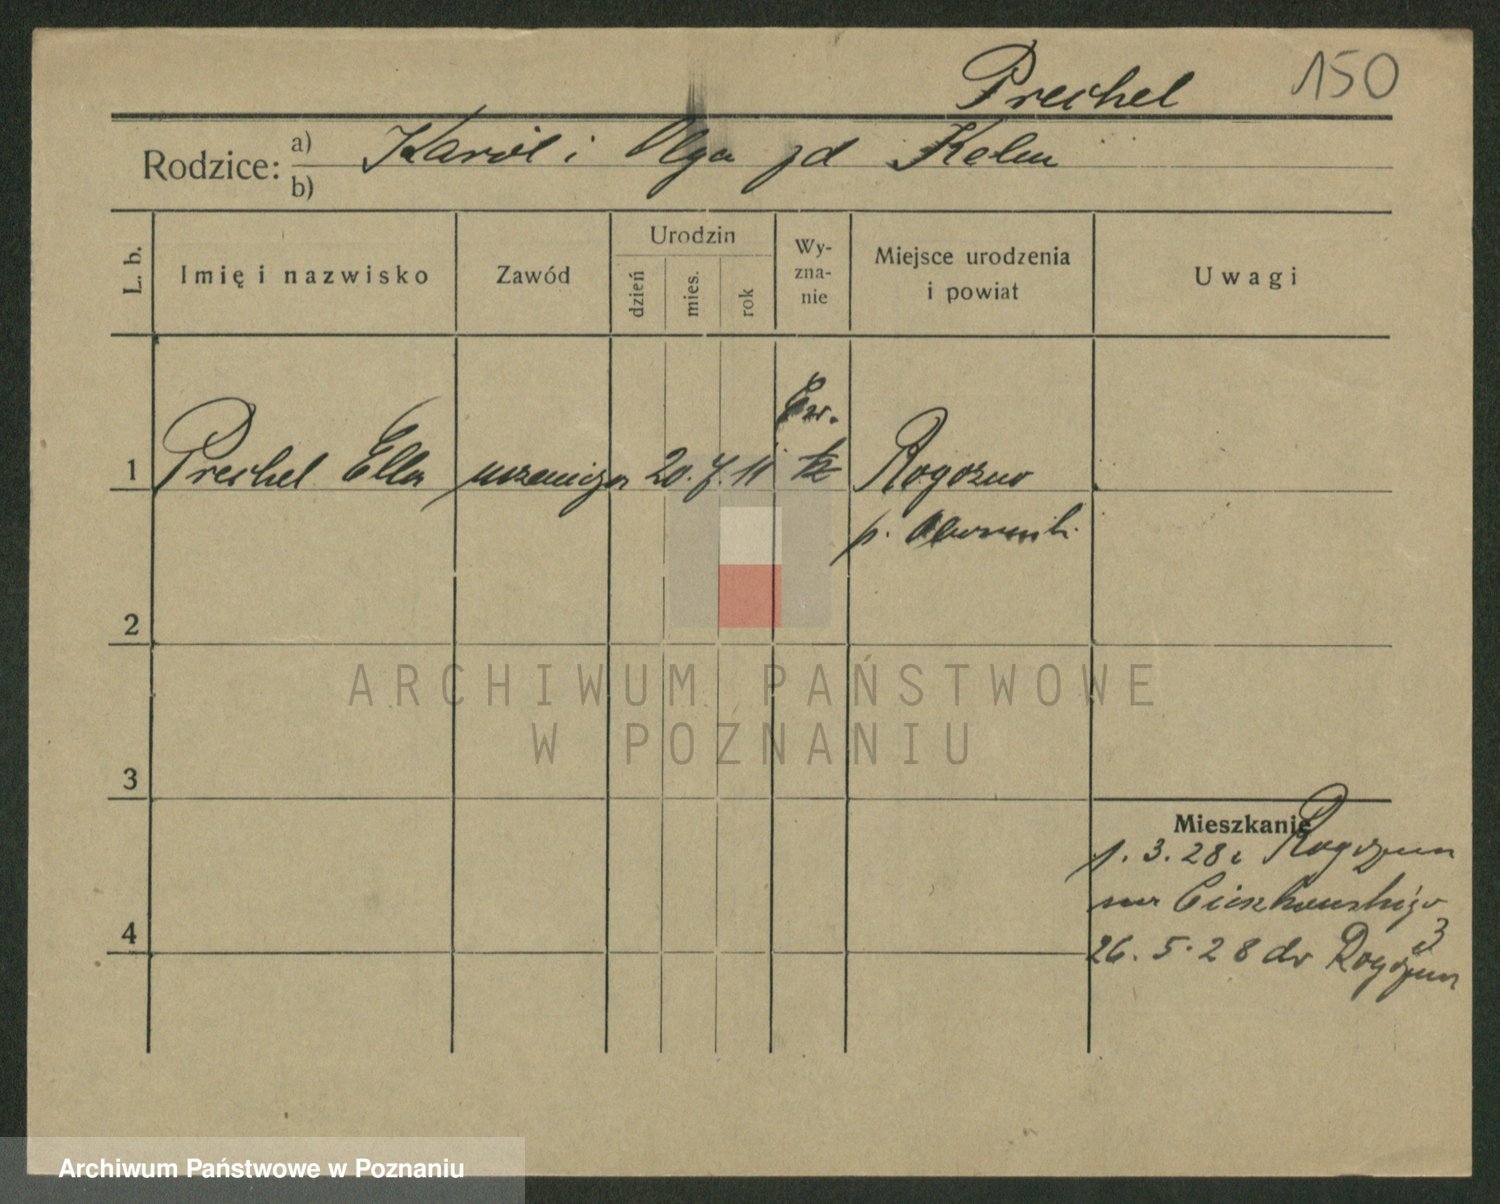 Prechel 150
Rodzice: a) Karol i Olga zd Kelm
b)
L. b.
Imię i nazwisko
Zawód
Urodzin
dzień
mies.
rok
Wy-
zna-
nie
Miejsce urodzenia
i powiat
Uwagi
Ew.
1 Prechel Ella uczenica 20. 7. 11 Rogoźno
p. Oborniki
2
ARCHIWUM PAŃSTWOWE
W POZNANIU
3
Mieszkanie
1. 3. 28 z Rogoźna
na Cieszkowskiego
3
4
26. 5. 28 do Rogoźna
Archiwum Państwowe w Poznaniu